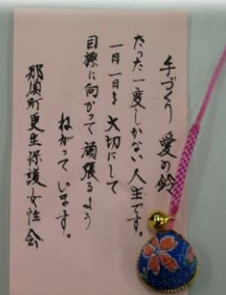 手づくり 愛の鈴
たった一度しかない人生です。
一日一日を大切にして
目標に向かって頑張るよう
ねがっています。
那須町更生保護女性会